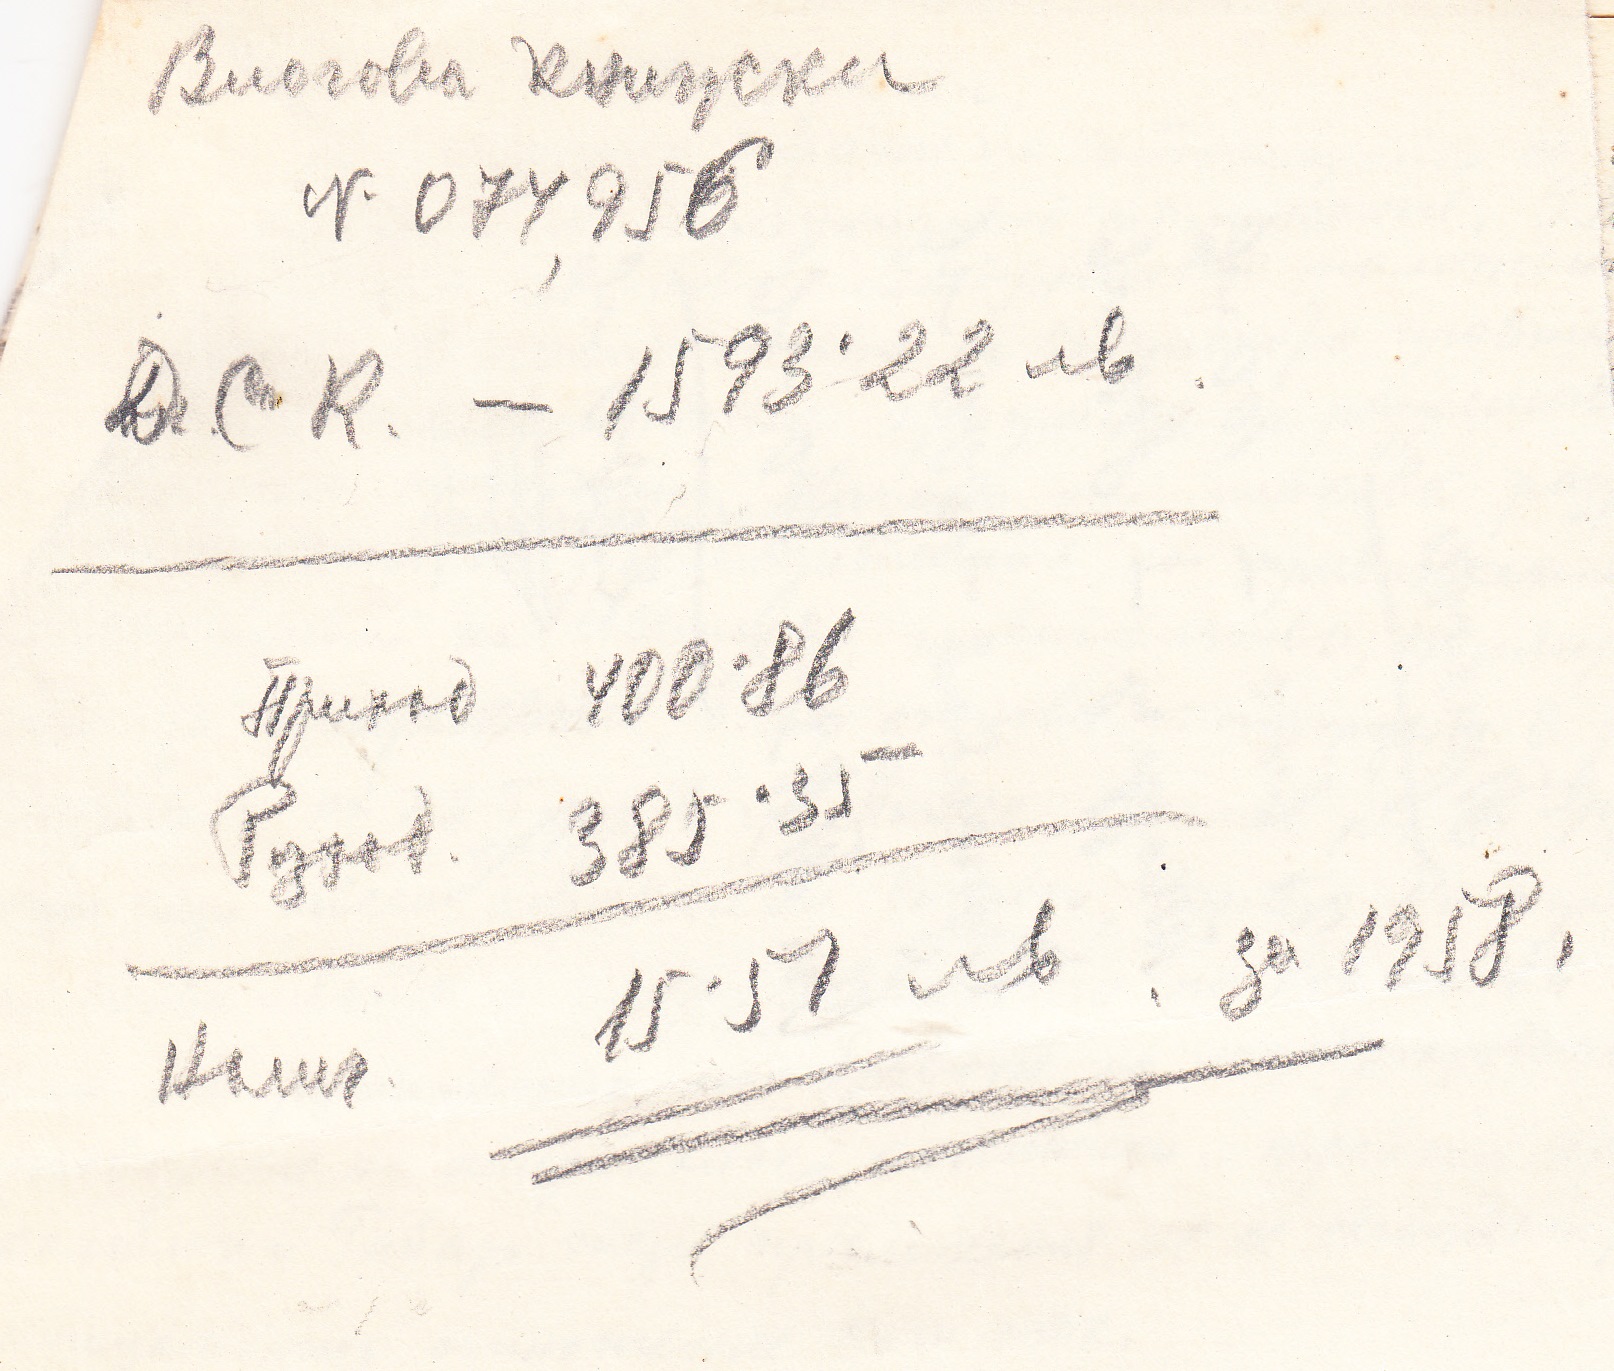 Влогова книжка
N. 074956
Д.С.К. – 1593.22 лв.
Приход 400.86
Разход. 385.35
15.51 лв. за 1958,
Налич.